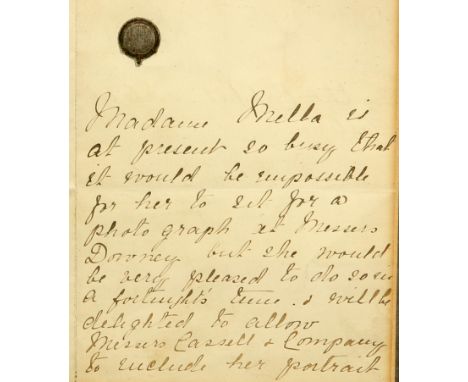 Madame Melba is
at present so busy that
it would be impossible
for her to sit for a
photograph at Messrs
Downey but she would
be very pleased to do so in
a fortnight's time. & will be
delighted to allow
Messrs Cassell & Company
to include her portrait